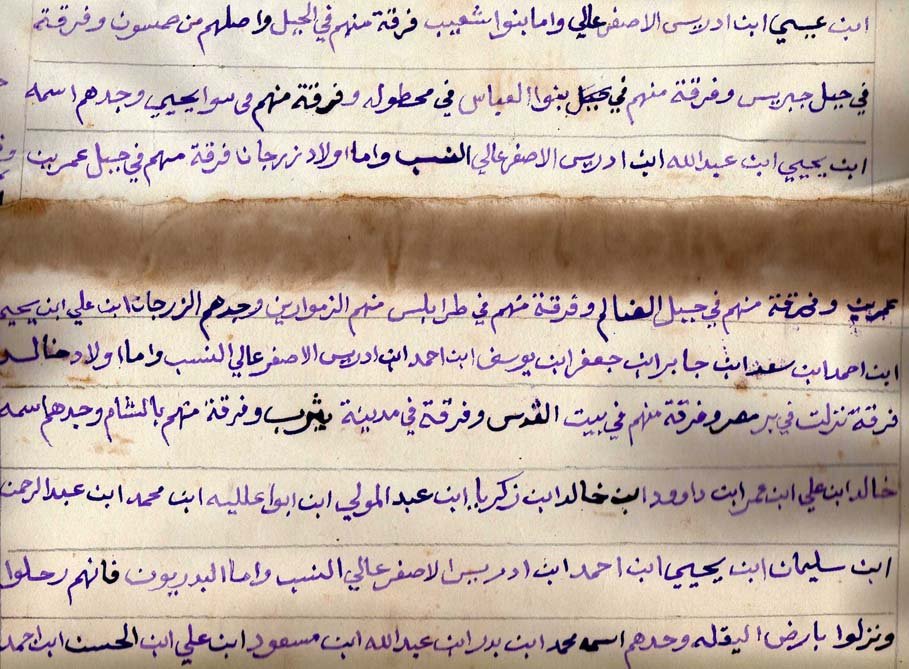 ابن عيسي ابن ادريس الاصغر عالي واما بنوا شعيب فرقة منهم في الجبل واصلهم من حمسون وفرقة
في جبل جبريس وفرقة منهم في جبل بنوا العباس في محطوله وفرقة منهم في سوا يحيي وجدهم اسمه
ابن يحيي ابن عبدالله ابن ادريس الاصغر عالي النسب واما اولاد زرجانا فرقة منهم في جبل عمر بن
عمر بن وفرقة منهم في جبيل الغنالم وفرقة منهم في طرابلس منهم الزموارين وجدهم الزرجان ابن علي ابن يحيى
ابن احمد ابن سعد ابن جابر ابن جعفر ابن يوسف ابن احمد ابن ادريس الاصغر عالي النسب واما اولاد خالد
فرقة نزلت في بر مصر وفرقة منهم في بيت القدس وفرقة في مدينة يثرب وفرقة منهم بالشام وجدهم اسمه
خالد ابن علي ابن عمر ابن داوود ابن خالد ابن زكريا ابن عبد المولي ابن ابوا علليه ابن محمد ابن عبد الرحمن
ابن سليمان ابن يحيي ابن احمد ابن ادريس الاصغر عالي النسب واما البدريون فانهم رحلوا
ونزلوا بارض اليقله وجدهم اسمه محمد ابن بدر ابن عبدالله ابن مسعود ابن علي ابن الحسن ابن احمد